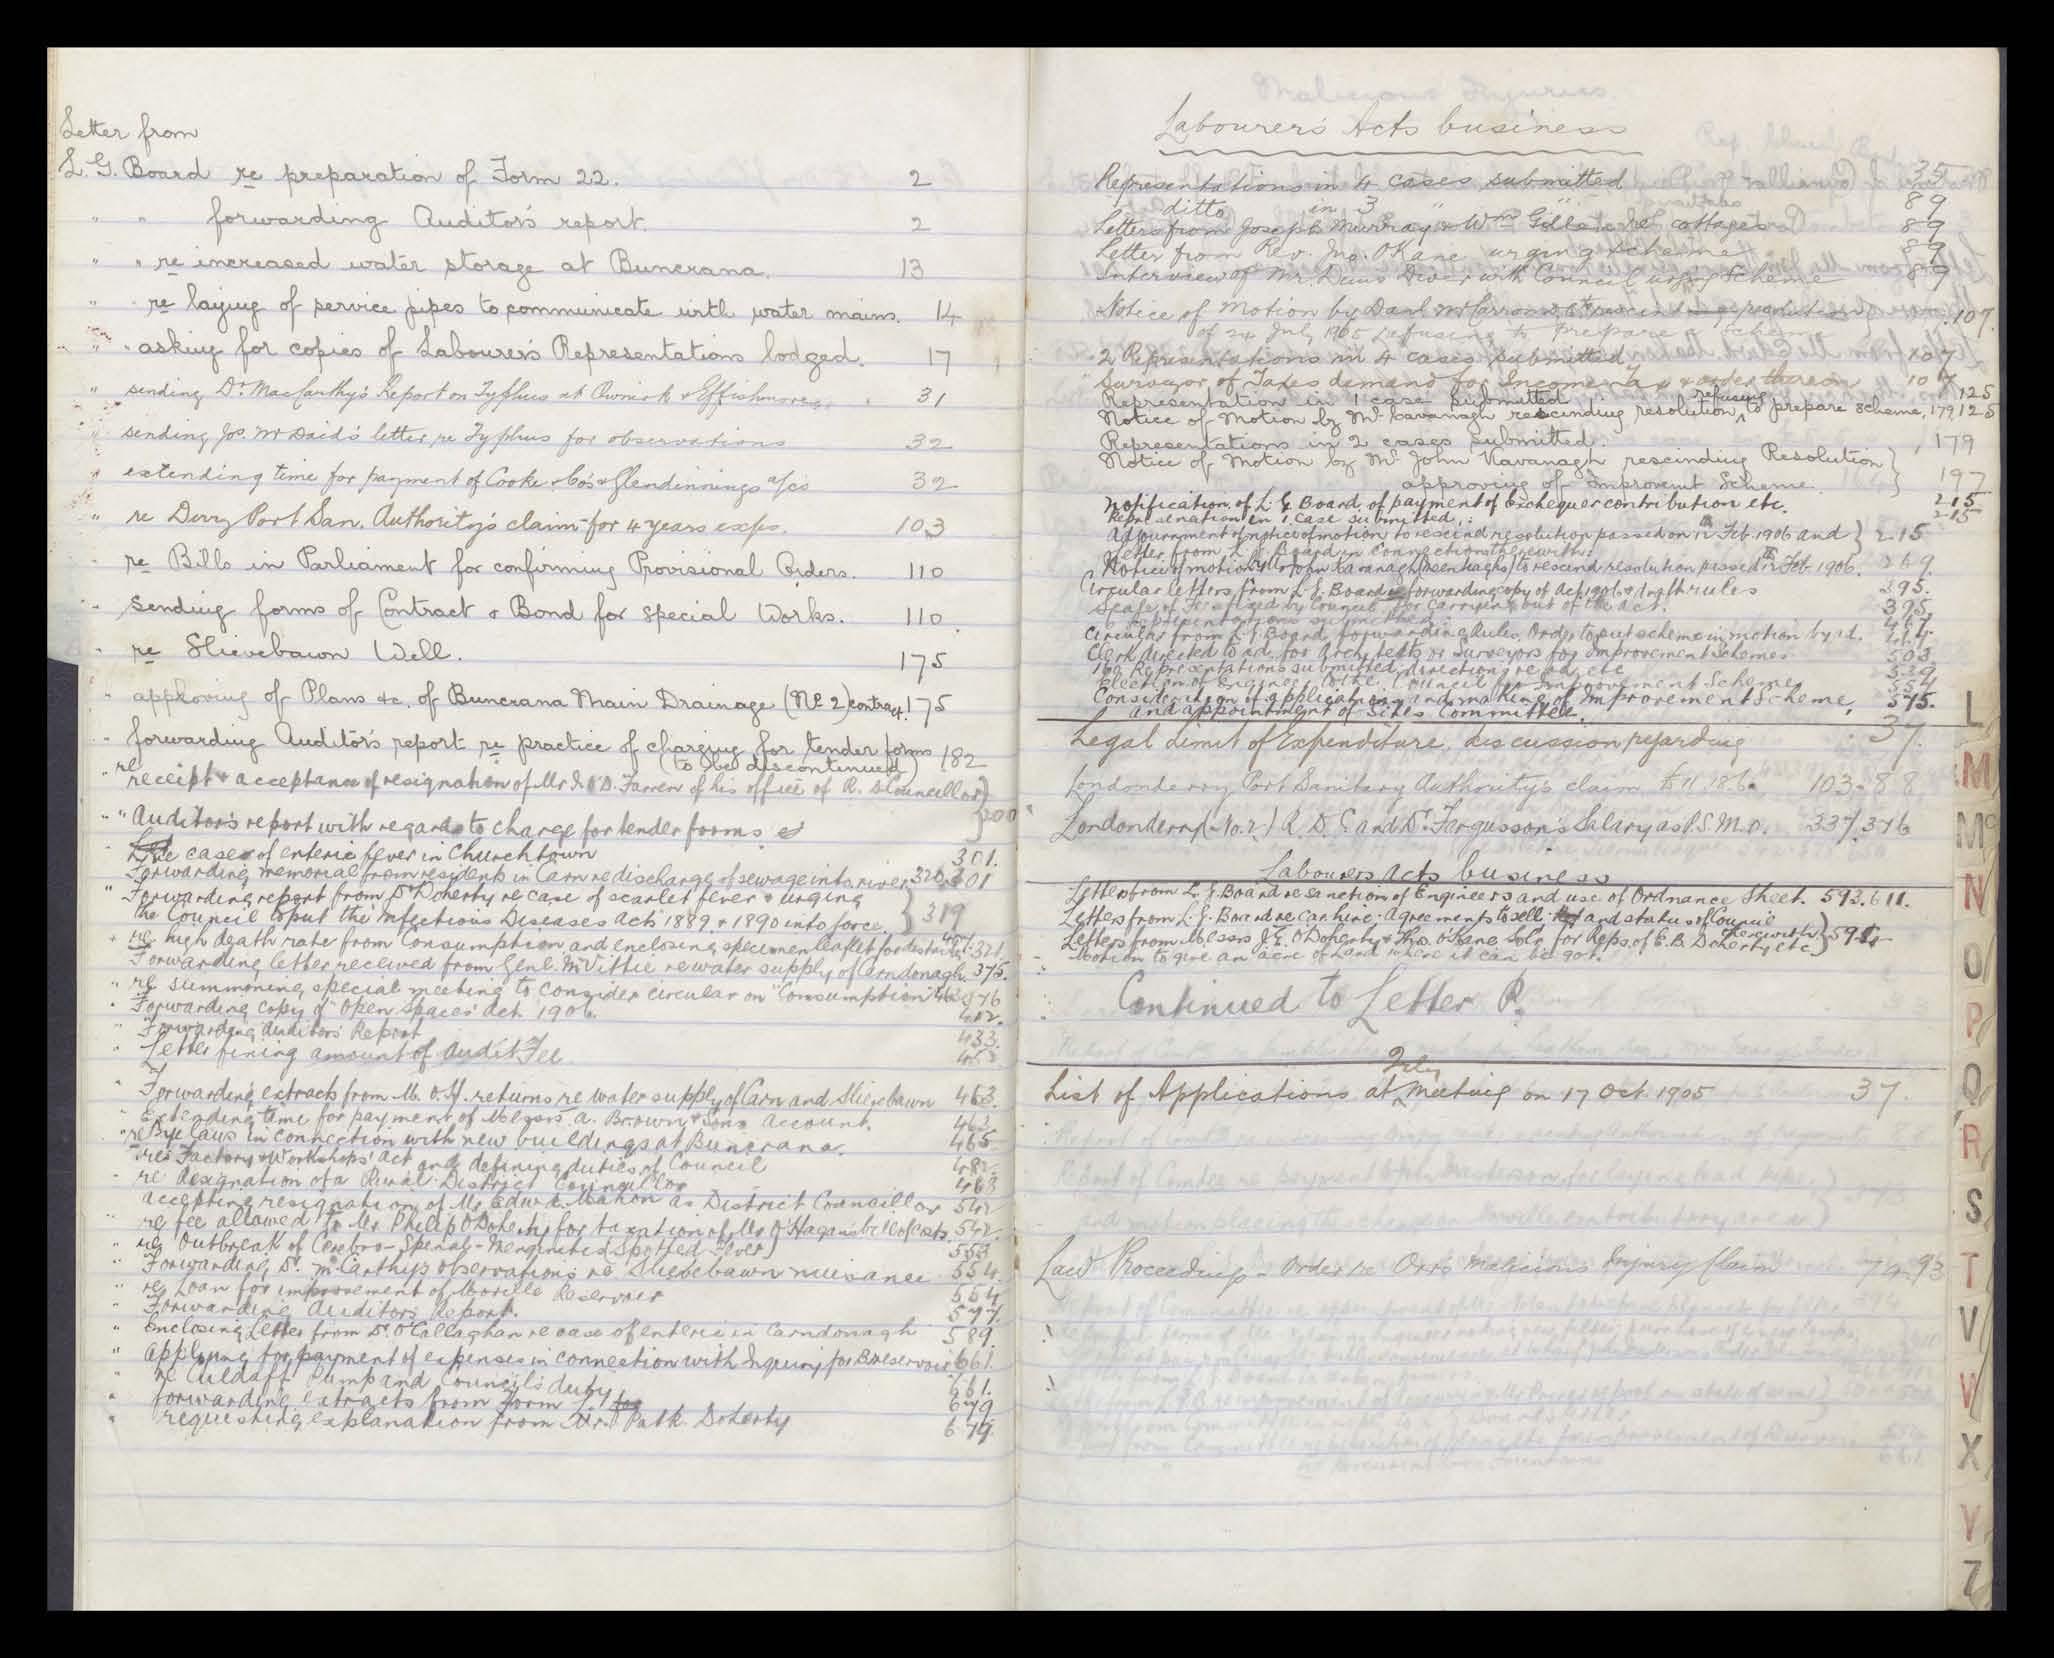 Letter from
L. G. Board re preparation of Form 22. 2
" " forwarding Auditor's report. 2
" " re increased water storage at Buncrana. 13
" re laying of service pipes to communicate with water mains. 14
" " asking for copies of Labourer's Representations lodged. 17
" sending Dr. MacCarthy's Report on Typhus at Owenerk & Effishmore 31
" sending Jos. McDaid's letter re Typhus for observations 32
" extending time for payment of Cooke & Co's & Glendinnings a/cs 32
" re Derry Port San. Authority's claim for 4 years exps. 103
" re Bills in Parliament for confirming Provisional Orders. 110
" sending forms of Contract & Bond for special Works. 110
" re Slievebawn Well. 175
" approving of Plans &c. of Buncrana Main Drainage (No. 2) contract. 175
" forwarding Auditor's report re practice of charging for tender forms
(to be discontinued) 182
" re receipt & acceptance of resignation of Mr D. Farren of his office of R. D Councillor
" " Auditor's report with regards to charge for tender forms 200
" re cases of enteric fever in Churchtown 301.
Forwarding memorial from residents in Carn re discharge of sewage into river 320, 301
" Forwarding report from Dr Doherty re case of scarlet fever & urging
the Council to put the Infectious Diseases Acts 1889 & 1890 into force. 319
" re high death rate from Consumption and enclosing specimen leaflet for distribn 321.
Forwarding letter received from Genl. McVittie re water supply of Carndonagh. 375.
" re summoning special meeting to consider circular on "Consumption" 376
" Forwarding copy of "Open Spaces" Act 1906. 412.
" Forwarding Auditors' Report 433.
" Letter fixing amount of Audit Fee
" Forwarding extracts from M. O. H. returns re water supply of Carn and Slievebawn 463.
" Extending time for payment of Messrs. A. Brown & Sons Account. 463.
" re Bye Laws in connection with new buildings at Buncrana. 465
" re Factory & Workshops' Act and defining duties of Council 482.
re Resignation of a Rural District Councillor 483
accepting resignation of Mr Edwd. Mahon as District Councillor 542
" re fee allowed to Mr Philip O'Doherty for taxation of Mr O'Hagan's bill of costs. 542.
" re Outbreak of Cerebro-Spenal-Menginitis (Spotted Fever) 553
" Forwarding Dr. McCarthy's observations re Slievebawn nuisance 554.
" re Loan for improvement of Moville Reservoir 554
" Forwarding Auditors Report. 577.
" Enclosing Letter from Dr. O'Callaghan re case of enteric in Carndonagh 589.
" Applying for payment of expenses in connection with Inquiry for B. reservoir 661.
" re Culdaff Pump and Council's duty 661.
" forwarding extracts from Form 679
" requesting explanation from Mr. Patk. Doherty 679.
Labourer's Acts business
Representations in 4 cases submitted 35
ditto in 3 " " 89
Letters from Joseph Murray & Wm Gill re cottages 89
Letter from Rev. Jno. O'Kane urging scheme 89
Interview of Mr. Denis Diver with Council urging Scheme 89
Notice of Motion by Danl McCarron to rescind resolution
of 24 July 1905 refusing to prepare a scheme 107.
2 Representations in 4 cases submitted 107
Surveyor of Taxes demand for Income Tax & order thereon 107
Representation in 1 case submitted 125
Notice of Motion by Mr. Kavanagh rescinding resolution refusing to prepare scheme, 179, 125
Representations in 2 cases submitted. 179
Notice of Motion by Mr. John Kavanagh rescinding Resolution
approving of Improvemt Scheme 197
Notification of L. G. Board of payment of Exchequer contribution etc. 215
Representation in 1 case submitted. 215
Adjournment of notice of motion to rescind resolution passed on 12 Feb. 1906 and
Letter from L. G. Board in connection therewith: 215
Notice of motion by Mr John Kavanagh to rescind resolution passed 12 Feb. 1906. 269.
Circular letters from L. G. Board forwarding copy of Act 1906 & draft rules 395.
Scale of fees fixed by Council for carrying out of the Act. 395.
6 representations submitted.
Circular from L. G. Board forwarding Rules, Order to put scheme in motion by
Clerk directed to ad. for Architects or Surveyors for Improvement Schemes 503
Representations submitted, directions re ad. etc 539
Election of Engineer
Consideration of applications and making of Improvement Scheme,
and appointment of Sites Committee. 575.
Legal limit of Expenditure, discussion regarding 37.
Londonderry Port Sanitary Authority's claim £11.18.6. 103-88
Londonderry (No. 2) R. D. C. and Dr. Fergusson's Salary as P. S. M. O. 337, 376
Labourers Acts business
Letters from L. G. Board re sanction of Engineers and use of Ordnance Sheet. 593. 611.
Letters from L. G. Board re Carbine. Agreements to sell and status of Council
Letters from Messrs J. E. O'Doherty & Thos. O'Kane Solrs for Reps. of E. B. Doherty etc therewith 594
Motion to give an acre of land where it can be got.
Continued to Letter P.
List of Applications at Qtly Meeting on 17 Oct. 1905 37.
Law Proceedings - Order re Orr's Malicious Injury Claim 74-93
L
M
Mc
N
O
P
Q
R
S
T
V
W
X
Y
Z